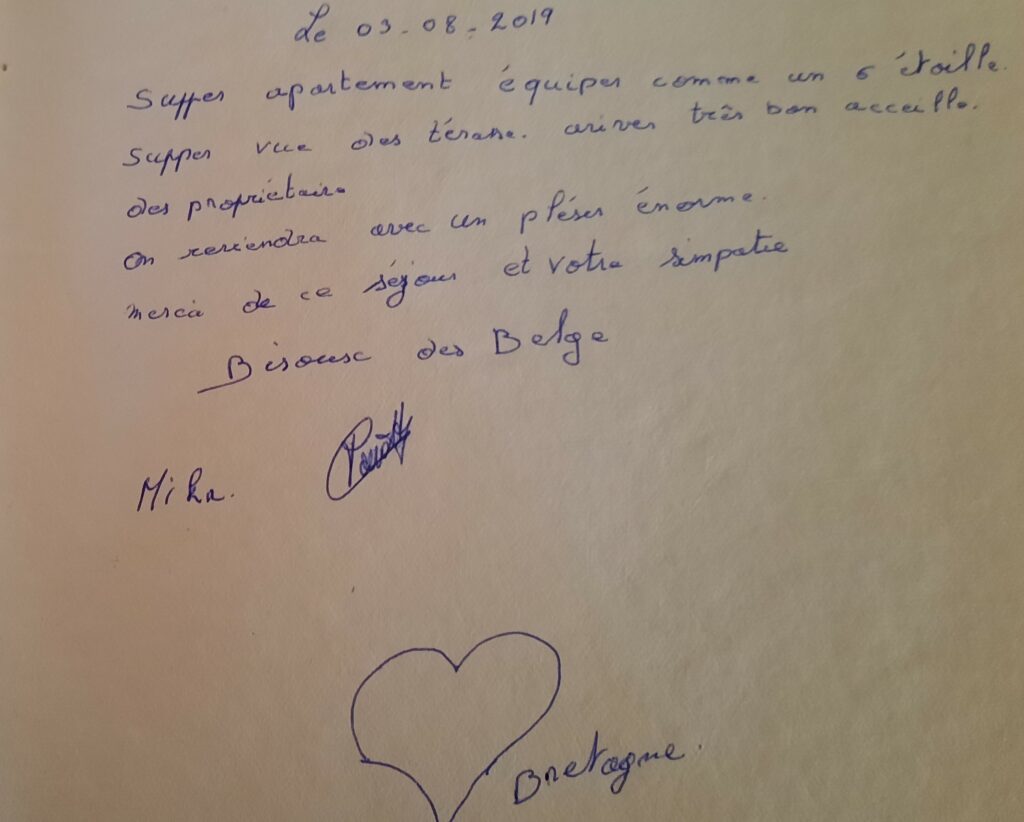 Le 03-08-2019
Supper apartement équiper comme un 5 étoille.
Supper vue des térasse. ariver très bon acceille.
des propriétaire
On reviendra avec un pléser énorme.
merci de ce séjour et votre simpatie
Bisousc des Belge
Mika.
Bretagne.